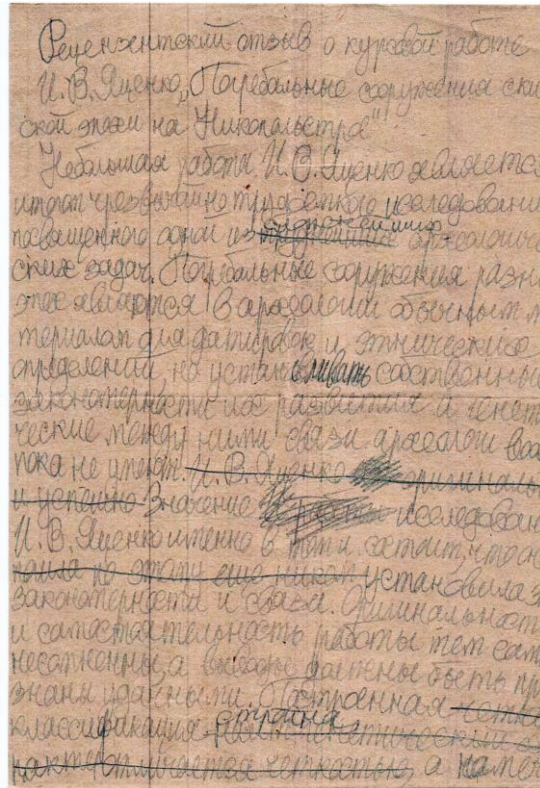 Рецензентский отзыв о курсовой работе
И. В. Яценко „Погребальные сооружения скиф
ской эпохи на Никопольстра"
Небольшая работа И. В. Яценко является
итогом чрезвычайно трудоемкого исследовани
посвященного одной из сложнейших археологиче
ских задач. Погребальные сооружения разны
эпох являются в археологии обычным ма
териалом для датировок и этнических
определений, но устанавливать собственные
закономерности их развития и генети
ческие между ними связи археологи
пока не умеют. И. В. Яценко оригинальн
и успешно Значение исследован
И. В. Яценко именно в том и состоит, что он
пошла по этому еще никем установила э
закономерности и связи. Оригинальность
и самостоятельность работы тем сам
несомненны, а выводы должны быть при
знаны удачными. Построенная четка
классификация стройна
отличается четкостью, а намеч